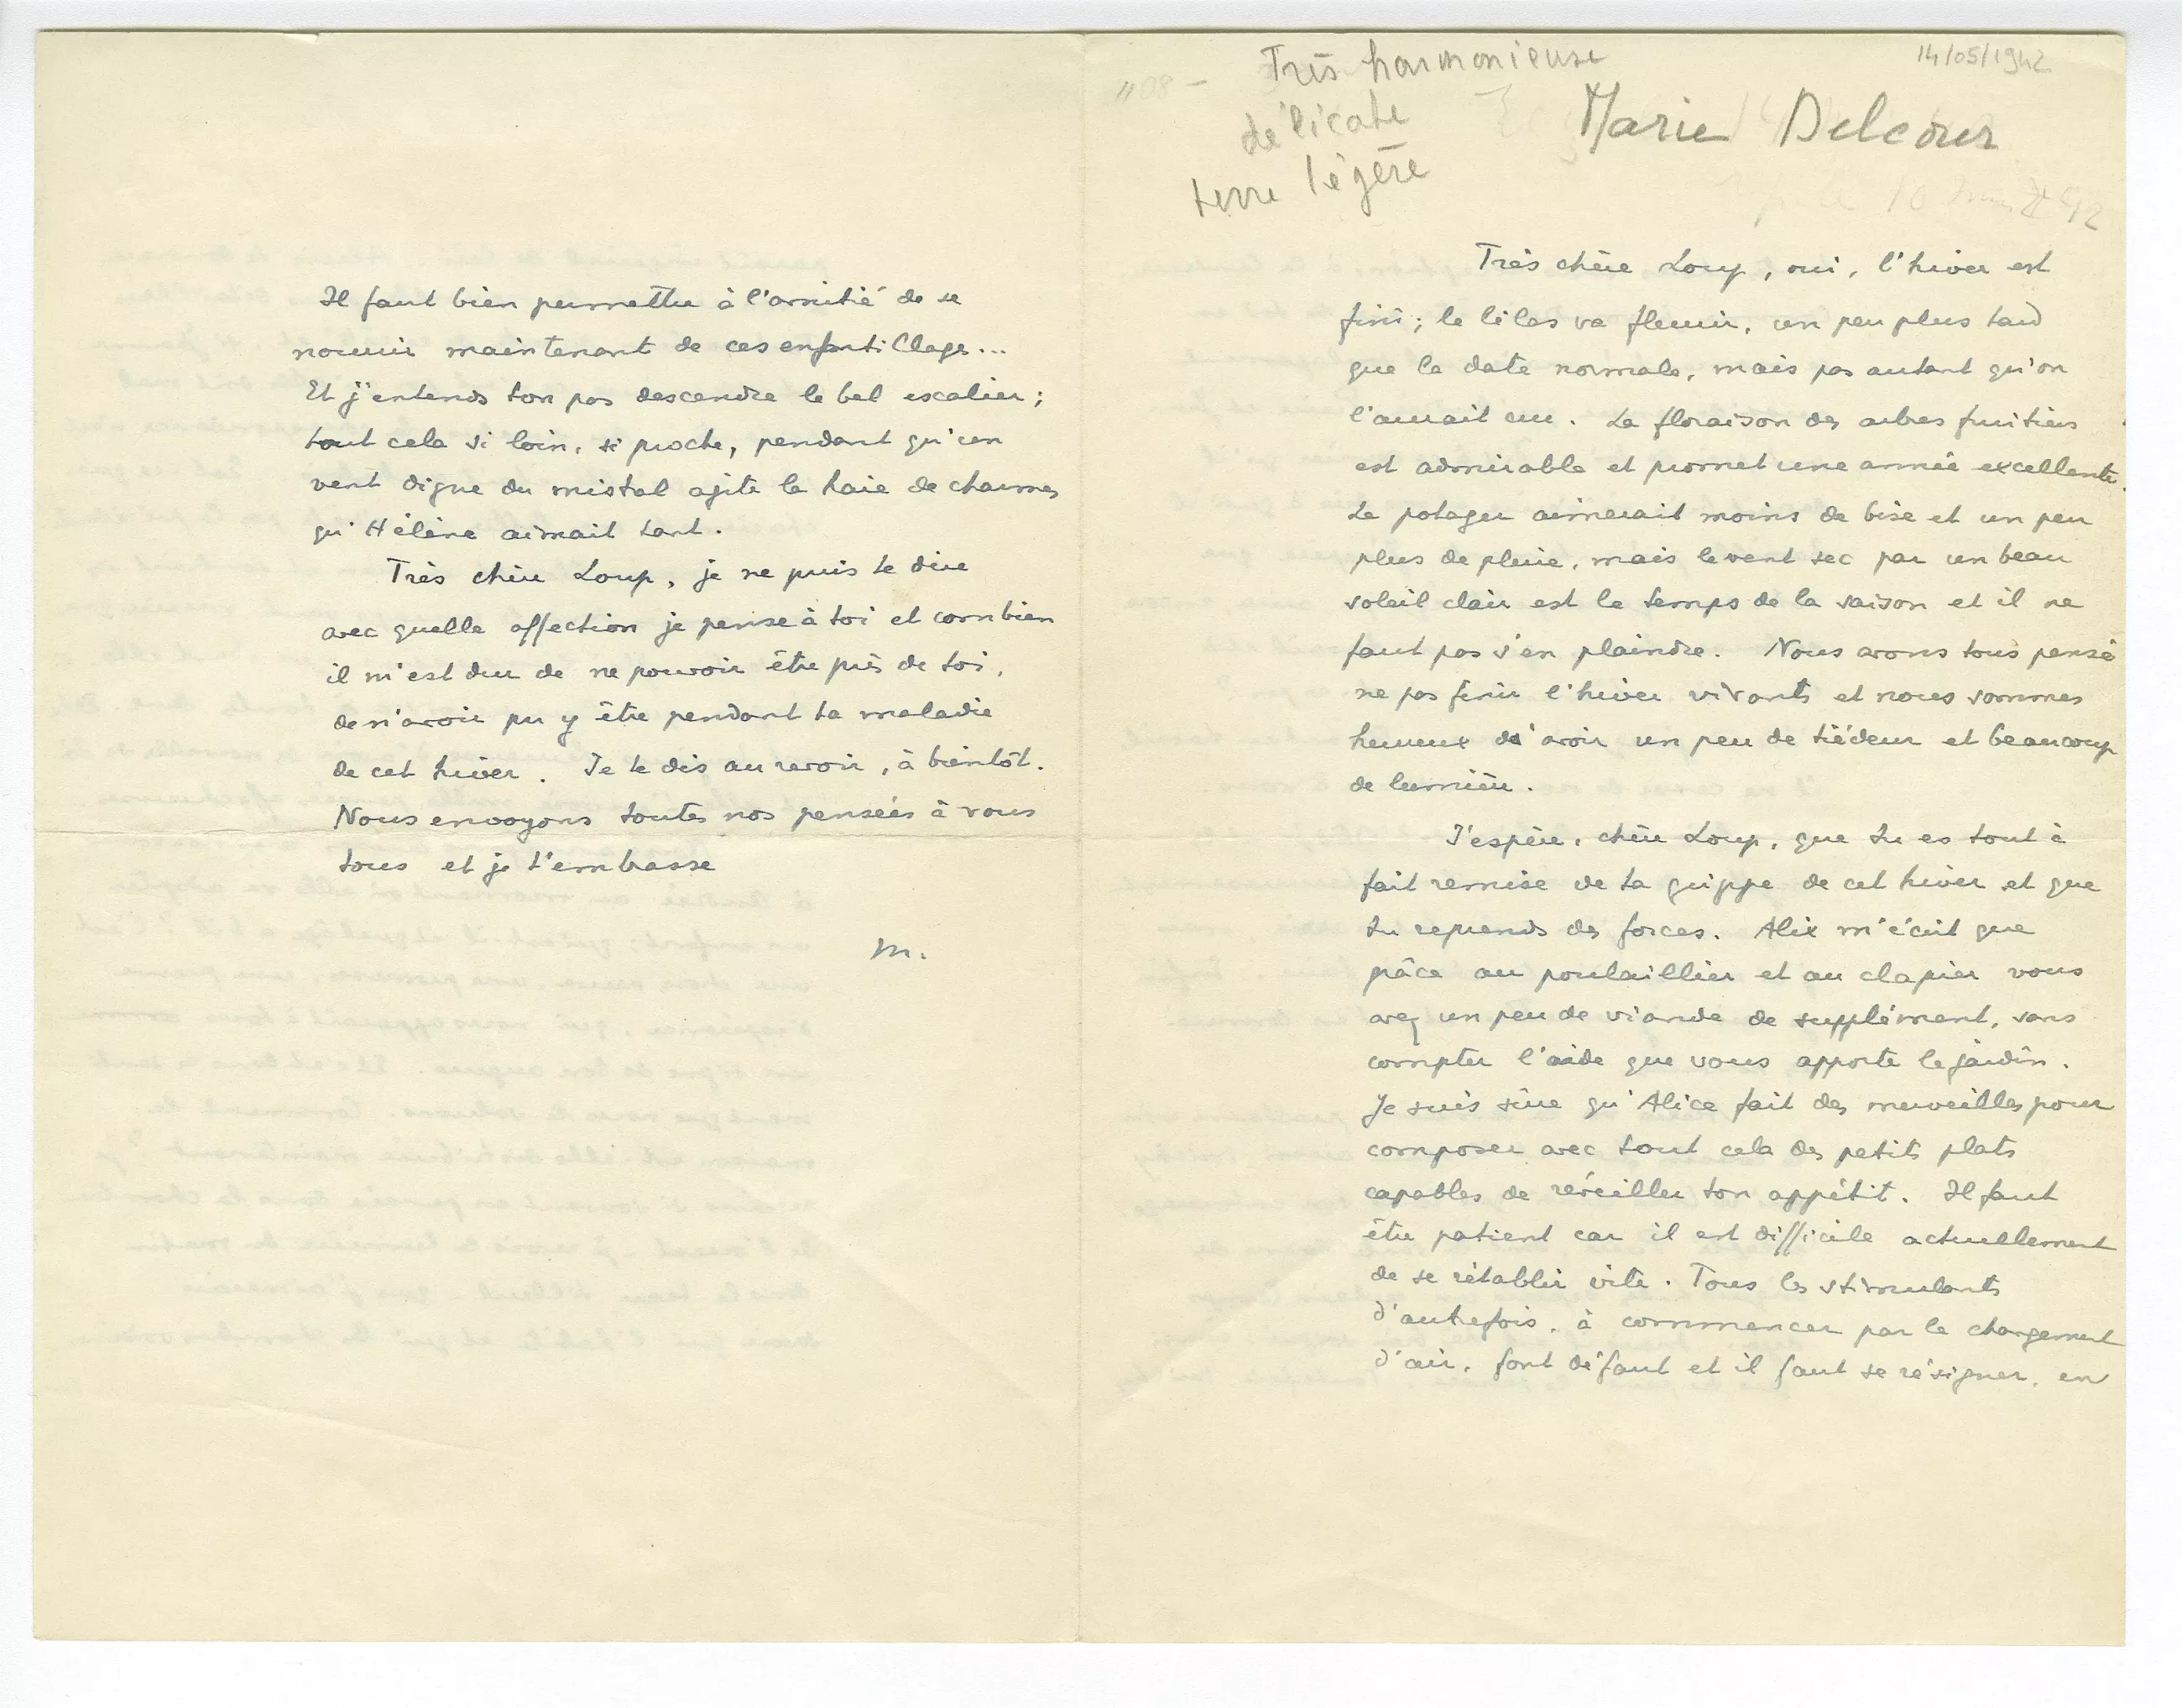 Très harmonieuse
délicate
terre légère
14/05/1942
Marie Delcour
Très chère Loup, oui, l'hiver est
fini ; le lilas va fleurir, un peu plus tard
que la date normale, mais pas autant qu'on
l'aurait cru. La floraison des arbres fruitiers
est admirable et promet une année excellente.
Le potager aimerait moins de bise et un peu
plus de pluie, mais le vent sec par un beau
soleil clair est le temps de la saison et il ne
faut pas s'en plaindre. Nous avons tous pensé
ne pas finir l'hiver vivants et nous sommes
heureux d'avoir un peu de tiédeur et beaucoup
de lumière.
J'espère, chère Loup, que tu es tout à
fait remise de ta grippe de cet hiver et que
tu reprends des forces. Alix m'écrit que
grâce au poulaillier et au clapier vous
avez un peu de viande de supplément, sans
compter l'aide que vous apporte le jardin.
Je suis sûre qu'Alice fait des merveilles pour
composer avec tout cela des petits plats
capables de réveiller ton appétit. Il faut
être patient car il est difficile actuellement
de se rétablir vite. Tous les stimulants
d'autrefois, à commencer par le changement
d'air, font défaut et il faut se résigner, en
Il faut bien permettre à l'amitié de se
nourrir maintenant de ces enfantillages...
Et j'entends ton pas descendre le bel escalier ;
tout cela si loin, si proche, pendant qu'un
vent digne du mistral agite la haie de charmes
qu'Hélène aimait tant.
Très chère Loup, je ne puis te dire
avec quelle affection je pense à toi et combien
il m'est dur de ne pouvoir être près de toi,
de n'avoir pu y être pendant ta maladie
de cet hiver. Je te dis au revoir, à bientôt.
Nous envoyons toutes nos pensées à vous
tous et je t'embrasse
M.